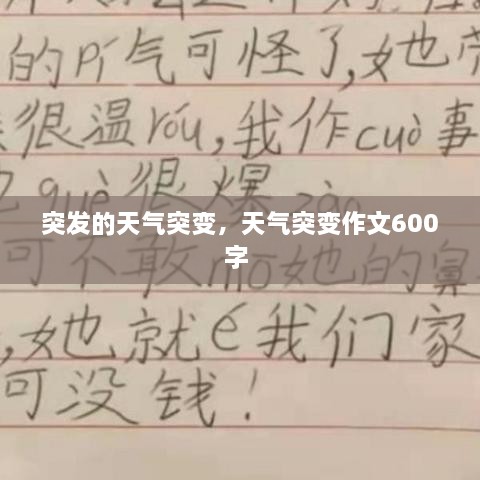 的pí气可怪了,她
很温róu,我作cuò事
què很爆zào
突发的天气突变，天气突变作文600
字
可不敢mō她的鼻
,她就é我们家
可没钱！